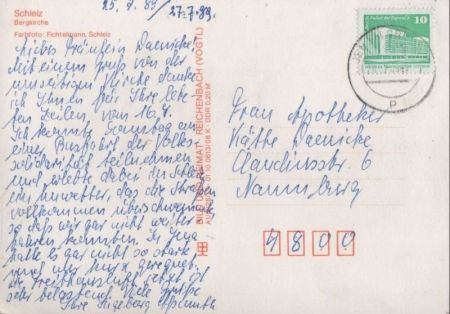 25.7.89 / 27.7.89.
Schleiz
Bergkirche
Farbfoto: Fichtelmann, Schleiz
Liebes Fräulein Daenicke!
Mit einem Gruß von der
umseitigen Kirche danke
ich Ihnen für Ihre lie-
ben Zeilen vom 16.7.
Ich konnte Sonntag an
einer Busfahrt der Volks-
solidarität teilnehmen
und erlebte dabei in Schleiz
ein Unwetter, das die Straßen
vollkommen überschwemmte,
so daß wir gar nicht weiter
fahren konnten. In Jena
hatte es gar nicht so stark
und nur kurz geregnet.
ist
sehr belastend. Viele Grüße
Ihre Ingeborg
BILD UND HEIMAT REICHENBACH (VOGTL)
01 10 0613/06 K DDR 0,20 M
10
Frau Apotheker
Käthe Daenicke
Claudiusstr. 6
Naumburg
4800